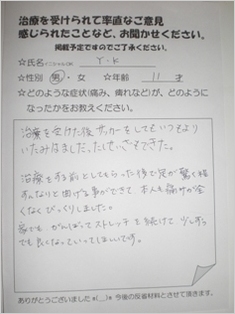 治療を受けられて率直なご意見
感じられたことなど、お聞かせください。
掲載予定ですのでご了承ください。
☆氏名 Y・K
☆性別 男・女 ☆年齢 11 才
☆どのような症状(痛み、痺れなど)が、どのように
なったかをお教えください。
治療を受けた後サッカーをしてもいつもより
いたみはました。たしせいこそできた。
治療をする前としてもらった後で足が驚く程
すんなりと曲げる事ができて本人も痛みが全
くなくびっくりしました。
家でも、がんばってストレッチを続けて少しずつ
でも良くなっていってほしいです。
ありがとうございました m(__)m 今後の反省材料とさせて頂きます。